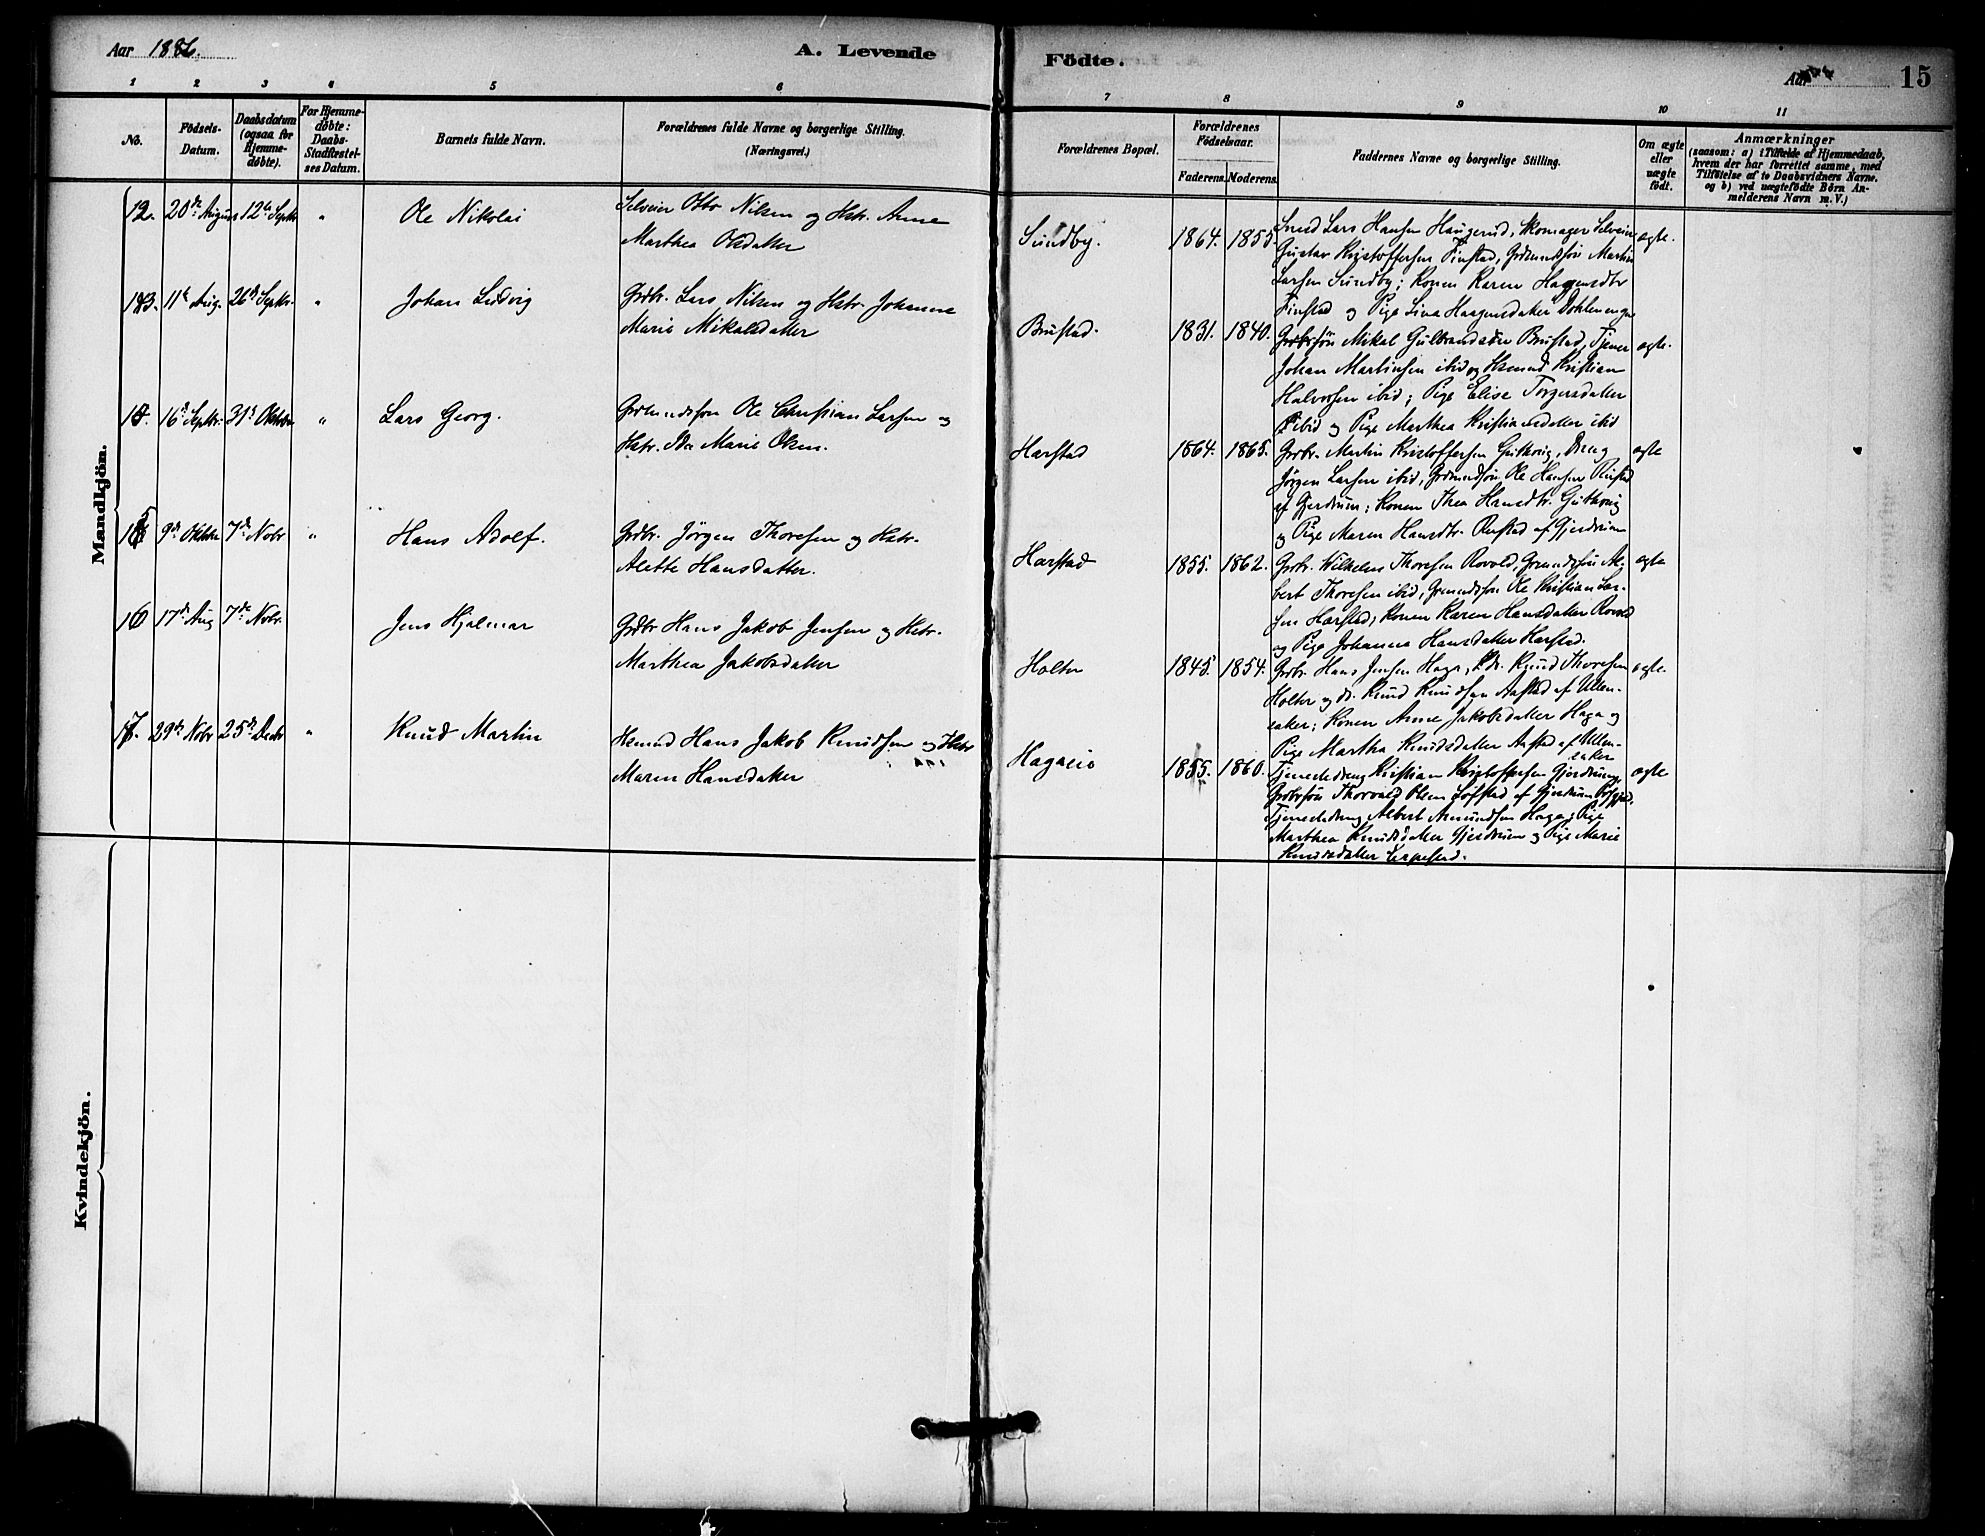 Aar 1886.
A. Levende Födte.
Aar
15
1 2 3 4 5 6 7 8 9 10 11
No.
Födsels-Datum.
Daabsdatum (ogsaa for Hjemme-döbte).
For Hjemme-döbte: Daabs-Stadfæstel-ses Datum.
Barnets fulde Navn.
Forældrenes fulde Navne og borgerlige Stilling. (Næringsvei.)
Forældrenes Bopæl.
Forældrenes Födselsaar.
Faderens. Moderens.
Faddernes Navne og borgerlige Stilling.
Om ægte eller uægte födt.
Anmærkninger
(saasom: a) i Tilfælde af Hjemmedaab,
hvem der har forrettet samme, med
Tilföielse af to Daabsvidners Navne.
og b) ved uægtefödte Börn An-
melderens Navn m.V.)
Mandkjön.
12. 20de August 12te Septbr " Ole Nikolai
Selveier Otto Nilsen og Hstr. Anne
Marthea Olsdatter
Sundby. 1864. 1855. ægte.
Lars Hansen Haugerud, Skomager Selveier
Gustav Kristoffersen Finstad, Grdmandssön Martin
Larsen Sundby; Konen Karen Hagensdtr
Finstad og Pige Lina Haagensdatter
13. 11te Aug. 26de Septbr. " Johan Ludvig
Grdbr. Lars Nilsen og Hstr. Johanne
Marie Mikalsdatter
Brustad. 1831. 1840. ægte.
Grdbrsön Mikal Gulbrandsen Brustad, Tjener
Johan Martinsen ibid og Hsmand Kristian
Halvorsen ibid; Pige Elise Torgersdatter
ibid og Pige Marthea Kristiansdatter ibid
16de Septbr. 31te Oktober " Lars Georg.
Grdmandssön Ole Christian Larsen og
Hstr. Ida Marie Olsen.
Harstad 1864. 1865. ægte
Grdbr. Martin Kristoffersen Dreng
Jörgen Larsen ibid, Grdmandssön Ole Hansen
af Gjerdrum; Konen Thea Hansdtr.
og Pige Maren Hansdtr. af Gjerdrum
15 9de Oktbr 7de Nobr " Hans Adolf.
Grdbr. Jörgen Thoresen og Hstr.
Alette Hansdatter.
Harstad 1855. 1862. ægte
Grdbr. Wilhelm Thoresen Rovold, Grmandssön Al-
bert Thoresen ibid, Grmandssön Ole Kristian Lar-
sen Harstad; Konen Karen Hansdatter Rovold
og Pige Johanna Hansdatter Harstad.
16 17de Aug 7de Nobr. Jens Hjalmar
Grdbr Hans Jakob Jensen og Hstr.
Marthea Jakobsdatter
Holter 1845. 1854. ægte.
Grdbr. Hans Jensen Haga, do. Knud Thoresen
Holter og do. Knud Knudsen Aafstad af Ullen-
saker; Konen Anne Jakobsdatter Haga og
Pige Martha Knudsdatter Aafstad af Ullen-
saker
17. 29de Nobr 25de Decbr " Knud Martin
Hsmnd Hans Jakob Knudsen og Hstr
Maren Hansdatter
Hagaeie 1855. 1860. ægte
Tjenestedreng Kristian Kristoffersen Gjerdrum,
Grdbrsön Thorvald Olsen af Gjerdrum
Tjenestedreng Albert Amundsen Haga; Pige
Marthea Knudsdatter Gjerdrum og Pige Marie
Knudsdatter
Kvindekjön.